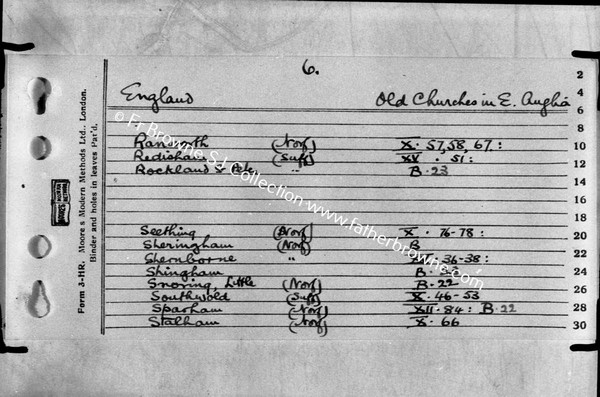 6.
2
England Old Churches in E. Anglia 4
6
8
Ranworth (Norf) X. 57, 58, 67: 10
Redisham (Suff) XV. 51: 12
Rockland St Pete " B. 23
14
16
18
Seething (Norf) X. 76-78: 20
Sheringham (Norf) B 22
Shernborne " 36-38:
Shingham B. 24
Snoring, Little (Norf) B. 22 26
Southwold (Suff) X. 46-53
Sparham (Norf) XII. 84: B. 22 28
Stalham (Norf) X. 66 30
Form 3-HR. Moore's Modern Methods Ltd., London.
Binder and holes in leaves Pat'd.
© Fr Browne SJ Collection www.fatherbrowne.com